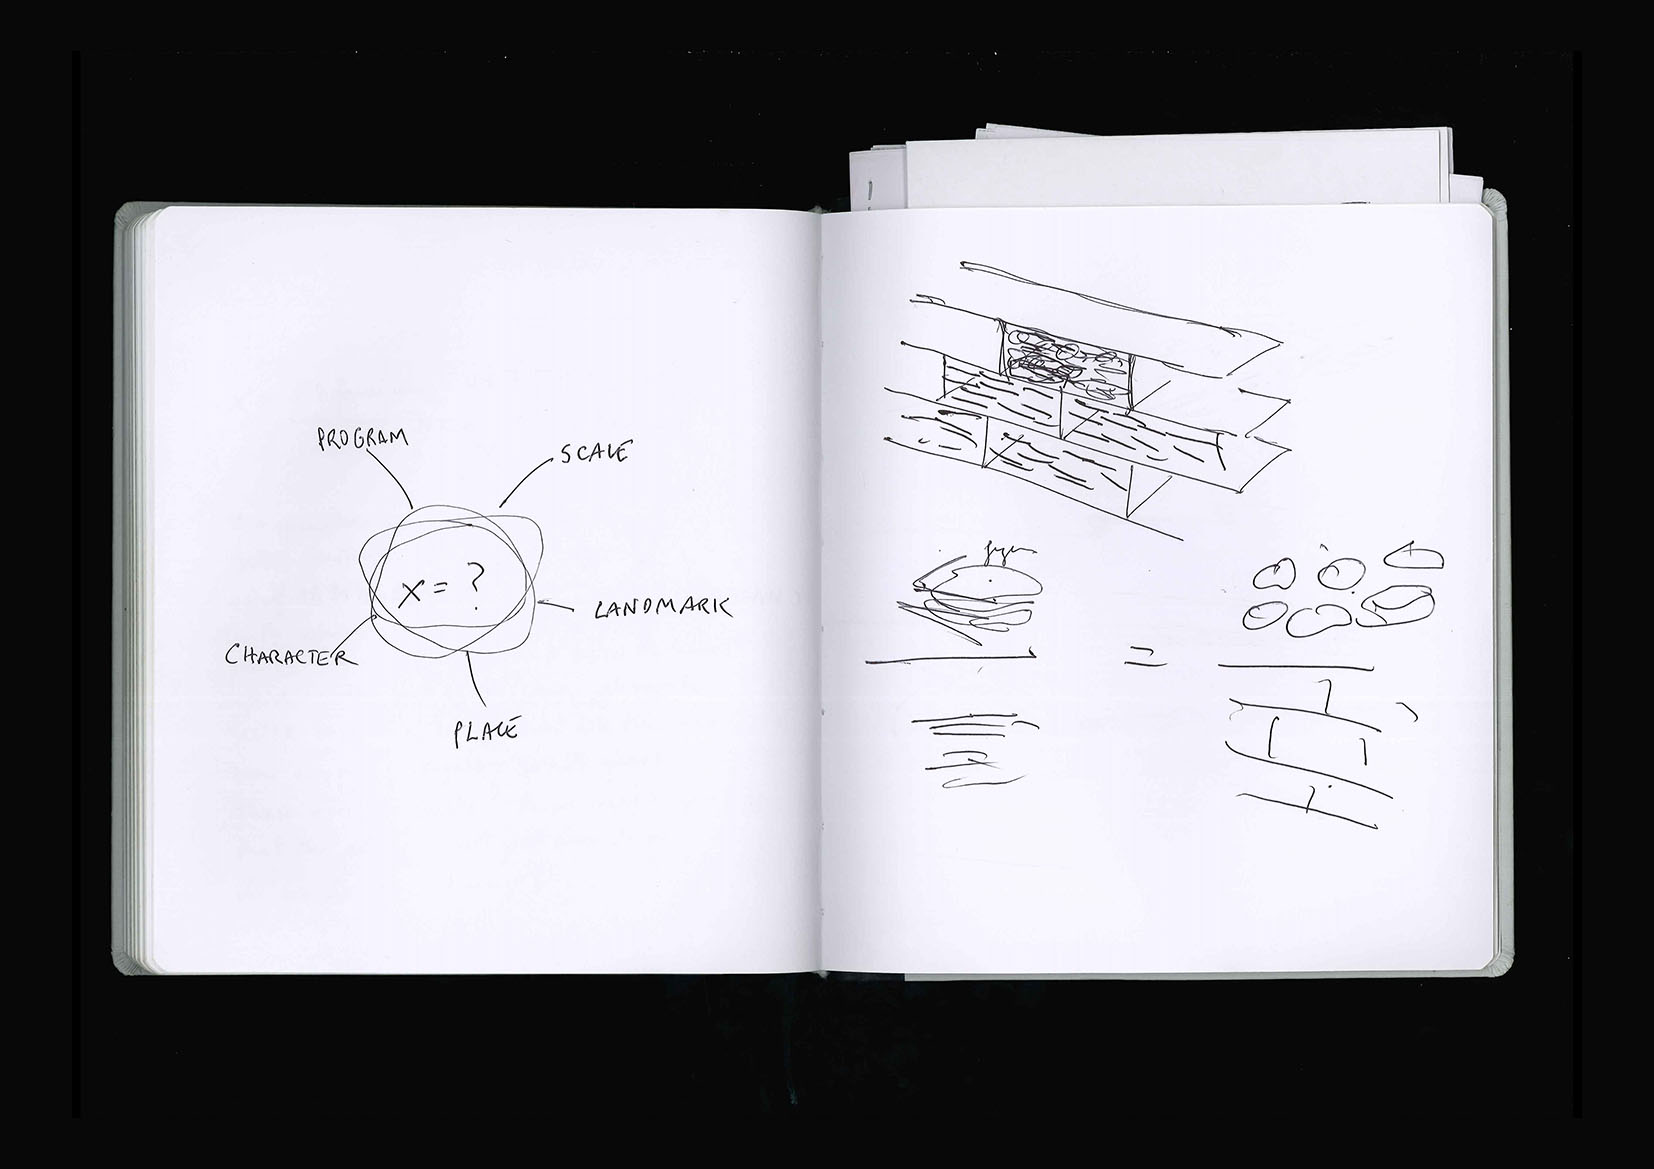 PROGRAM
SCALE
X = ?
LANDMARK
CHARACTER
PLACE
=